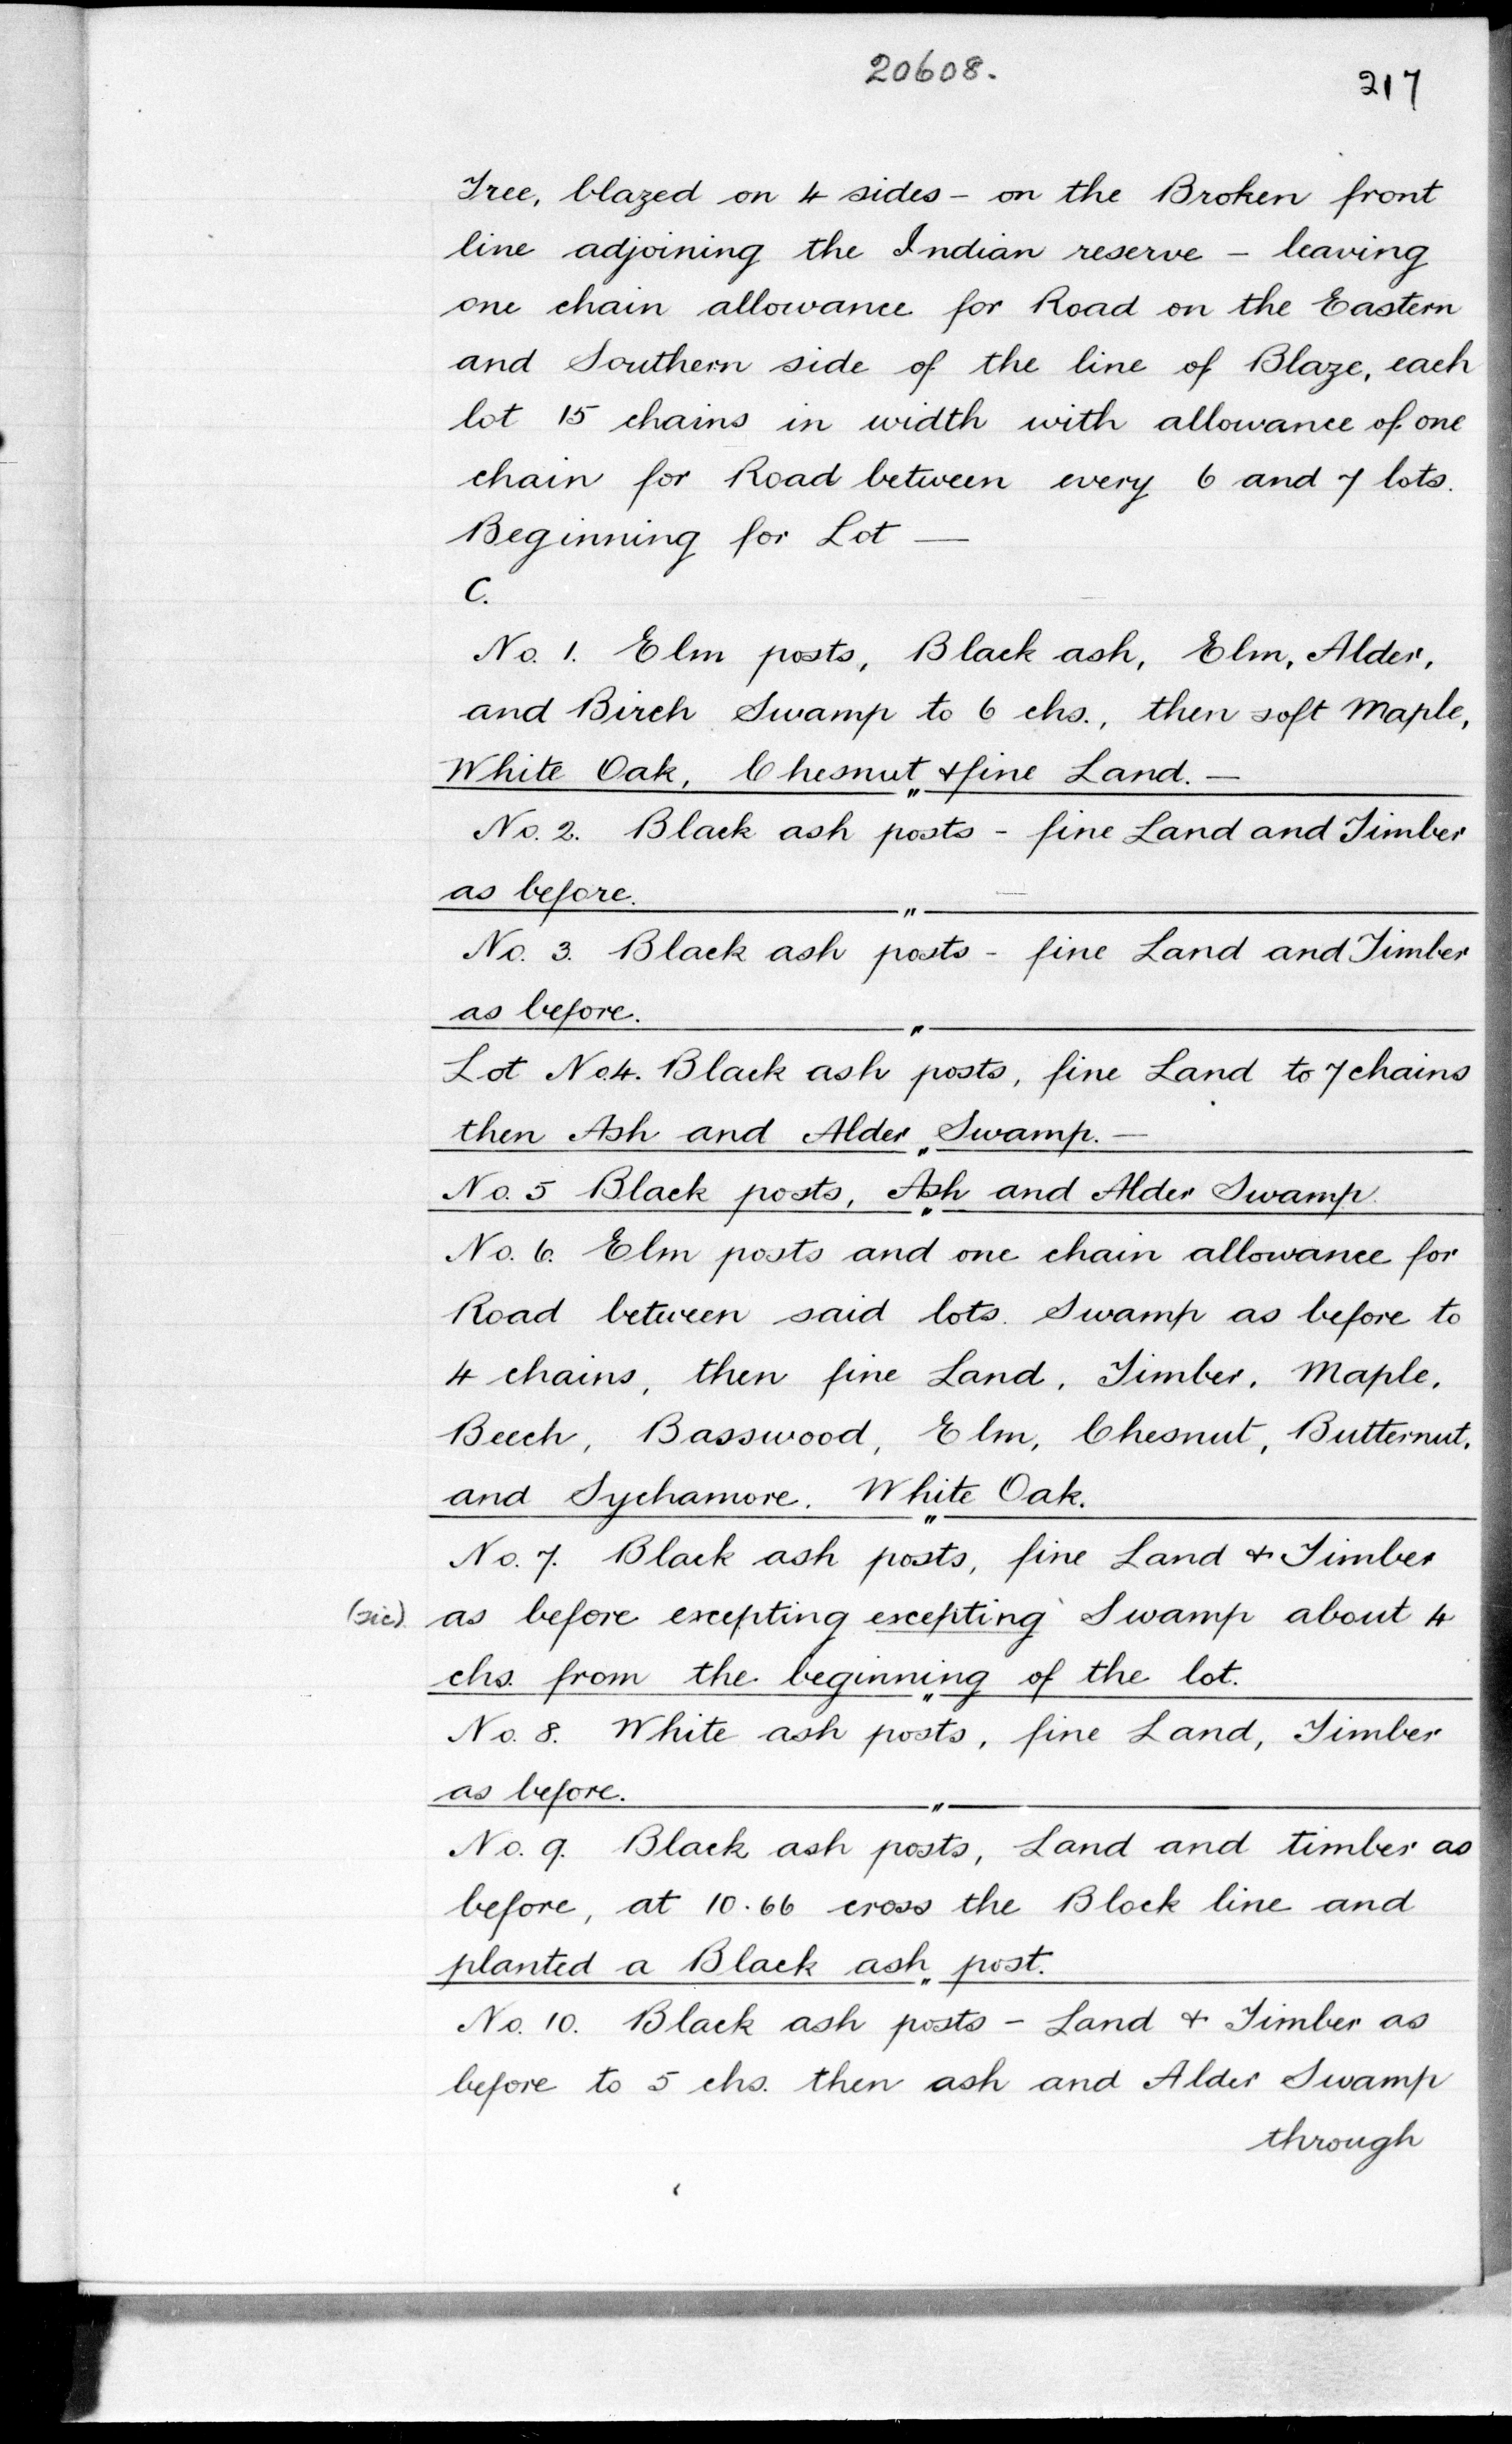 20608.
217
Tree, blazed on 4 sides - on the Broken front
line adjoining the Indian reserve - leaving
one chain allowance for Road on the Eastern
and Southern side of the line of Blaze, each
lot 15 chains in width with allowance of one
chain for Road between every 6 and 7 lots.
Beginning for Lot —
C.
No. 1. Elm posts, Black ash, Elm, Alder,
and Birch Swamp to 6 chs., then soft Maple,
White Oak, Chesnut & fine Land. —
"
No. 2. Black ash posts - fine Land and Timber
as before.
"
No. 3. Black ash posts - fine Land and Timber
as before.
"
Lot No. 4. Black ash posts, fine Land to 7 chains
then Ash and Alder Swamp. —
"
No. 5 Black posts, Ash and Alder Swamp.
"
No. 6. Elm posts and one chain allowance for
Road between said lots. Swamp as before to
4 chains, then fine Land, Timber, Maple,
Beech, Basswood, Elm, Chesnut, Butternut,
and Sychamore. White Oak.
"
No. 7. Black ash posts, fine Land & Timber
(sic) as before excepting excepting Swamp about 4
chs. from the beginning of the lot.
"
No. 8. White ash posts, fine Land, Timber
as before.
"
No. 9. Black ash posts, Land and timber as
before, at 10.66 cross the Block line and
planted a Black ash post.
"
No. 10. Black ash posts - Land & Timber as
before to 5 chs. then ash and Alder Swamp
through